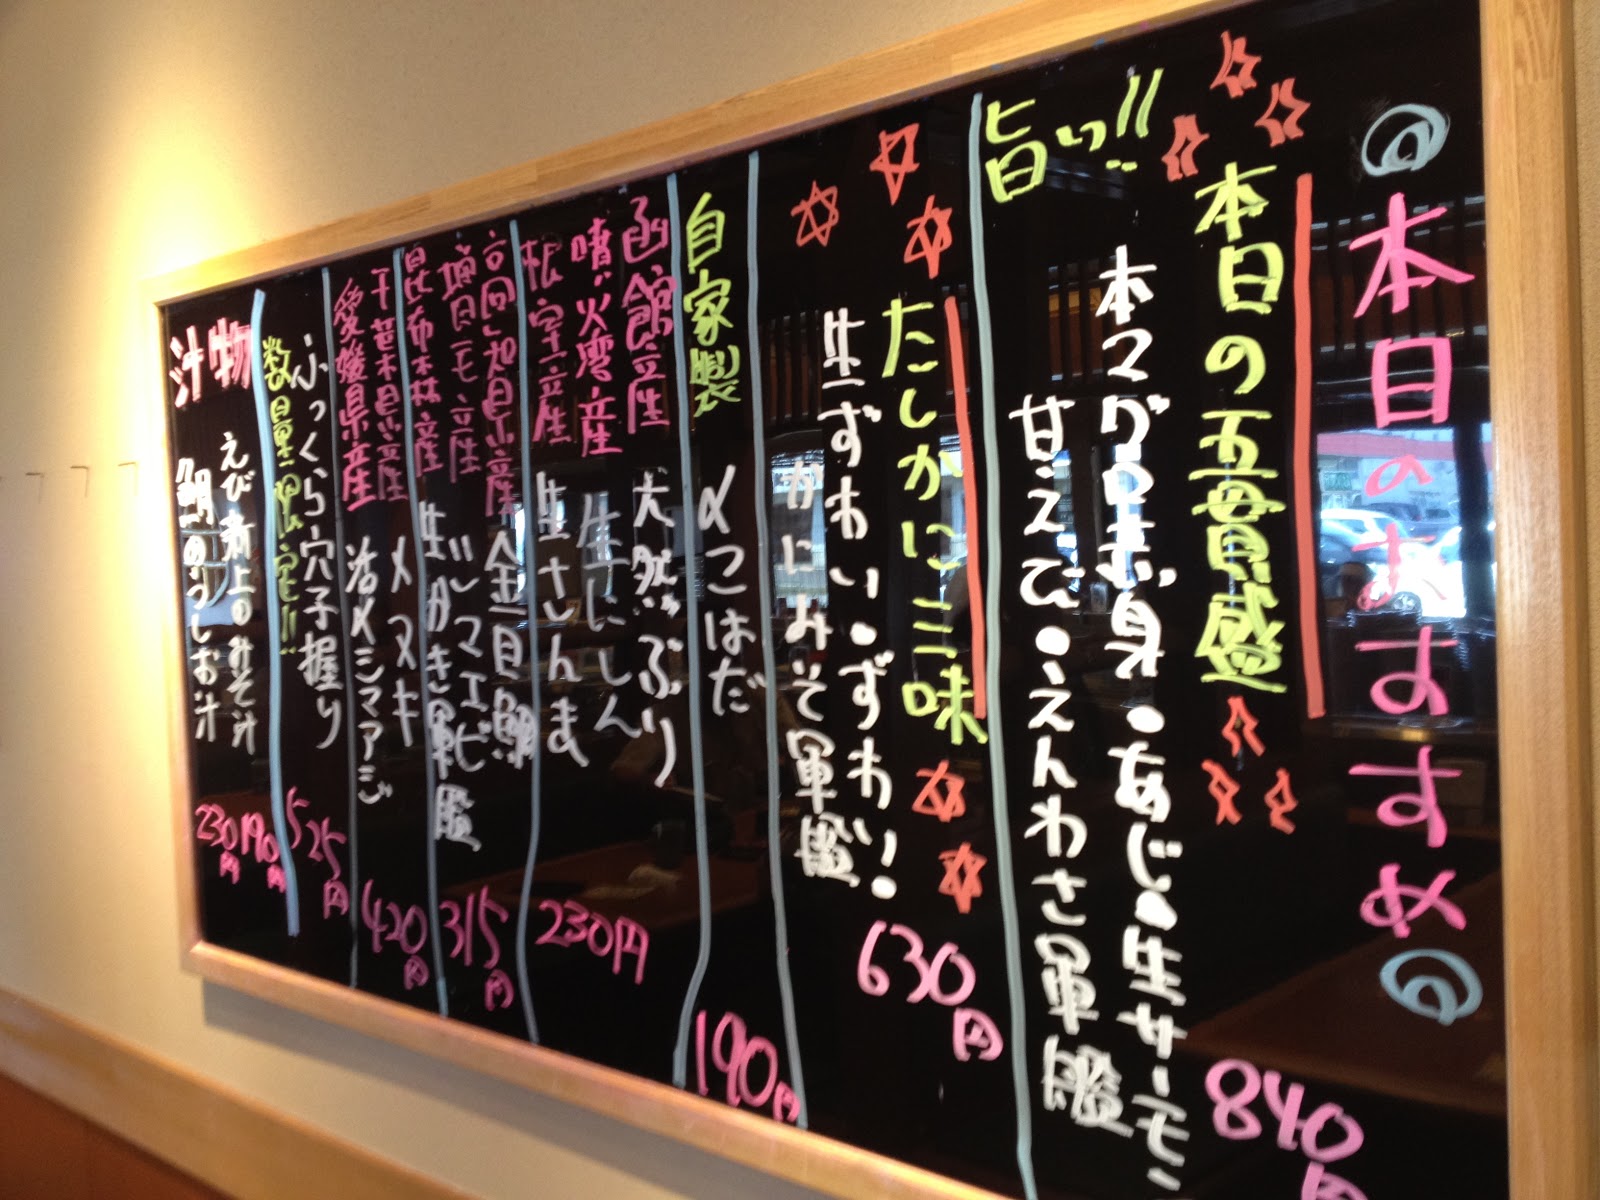 本日のおすすめ
本日の五貫盛
旨いっ!!
本マグロ赤身・あじ・生サーモン
甘えび・えんわさ軍艦
840円
たしかに三味
生ずわい・ずわい!
かにみそ軍艦
630円
自家製
〆こはだ
190円
函館産 天然ぶり
噴火湾産 生にしん
根室産 生さんま
230円
高知県産 金目鯛
境目モ産 ジマエビ
昆布森産 生かき軍艦
315円
千葉県産 メヌキ
愛媛県産 活〆シマアジ
420円
ふっくら穴子握り
数量限定!!
525円
汁物
えび頭のみそ汁
190円
鯛のうしお汁
230円